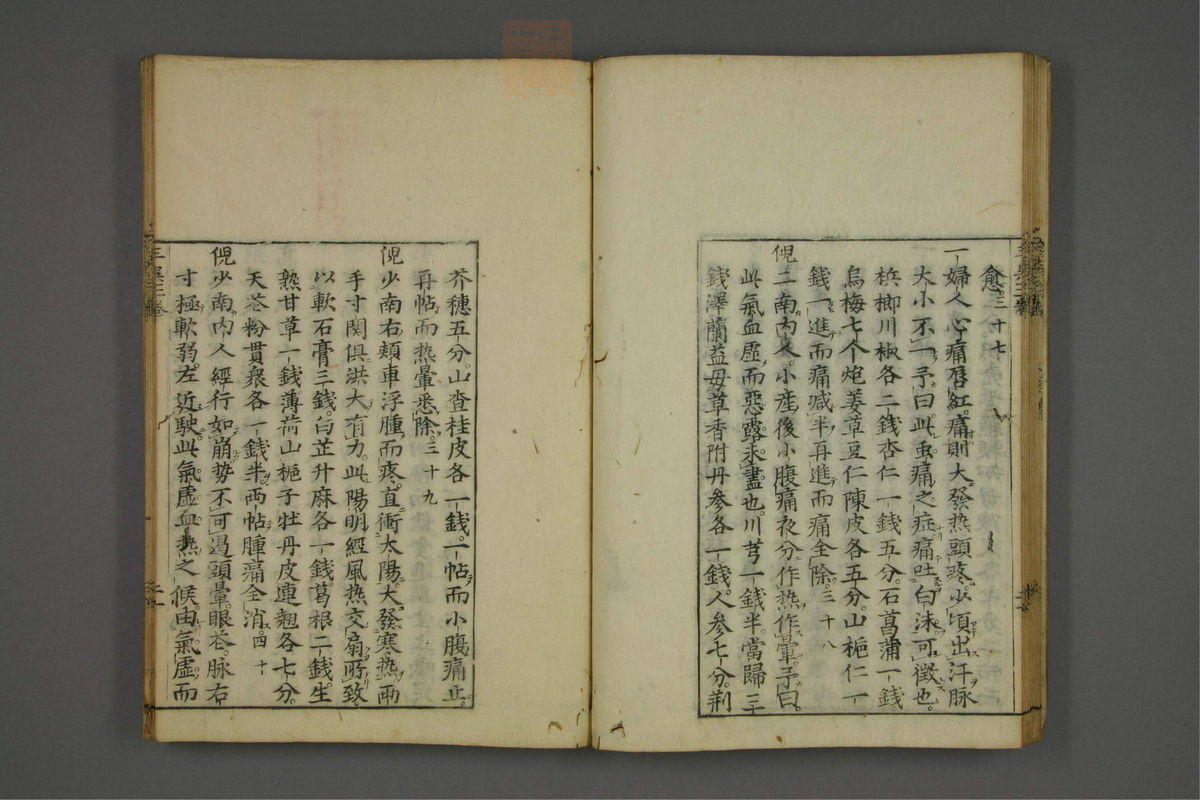 愈三十七
一婦人心痛唇紅痛則大發热頭疼少頃出汗脉
大小不一予曰此虫痛之症痛吐白沫可徵也
梹榔川椒各二錢杏仁一錢五分石菖蒲一錢
烏梅七个炮姜草豆仁陳皮各五分山梔仁一
錢一進而痛减半再進而痛全除三十八
倪二南内人小產後小腹痛夜分作热作暈予曰
此氣血虚而惡露未盡也川芎一錢半當歸三
錢澤蘭益母草香附丹參各一錢人參七分荆
芥穗五分山查桂皮各一錢一帖而小腹痛止
再帖而热暈悉除三十九
倪少南右頰車浮腫而疼直衝太陽大發寒热兩
手寸関俱洪大有力此陽明經風热交扇所致
以軟石膏三錢白芷升麻各一錢葛根二錢生
熟甘草一錢薄荷山梔子牡丹皮連翹各七分
天花粉貫衆各一錢半兩帖腫痛全消四十
倪少南内人經行如崩势不可遏頭暈眼花脉右
寸極軟弱左近駛此氣虚血热之候由氣虚而